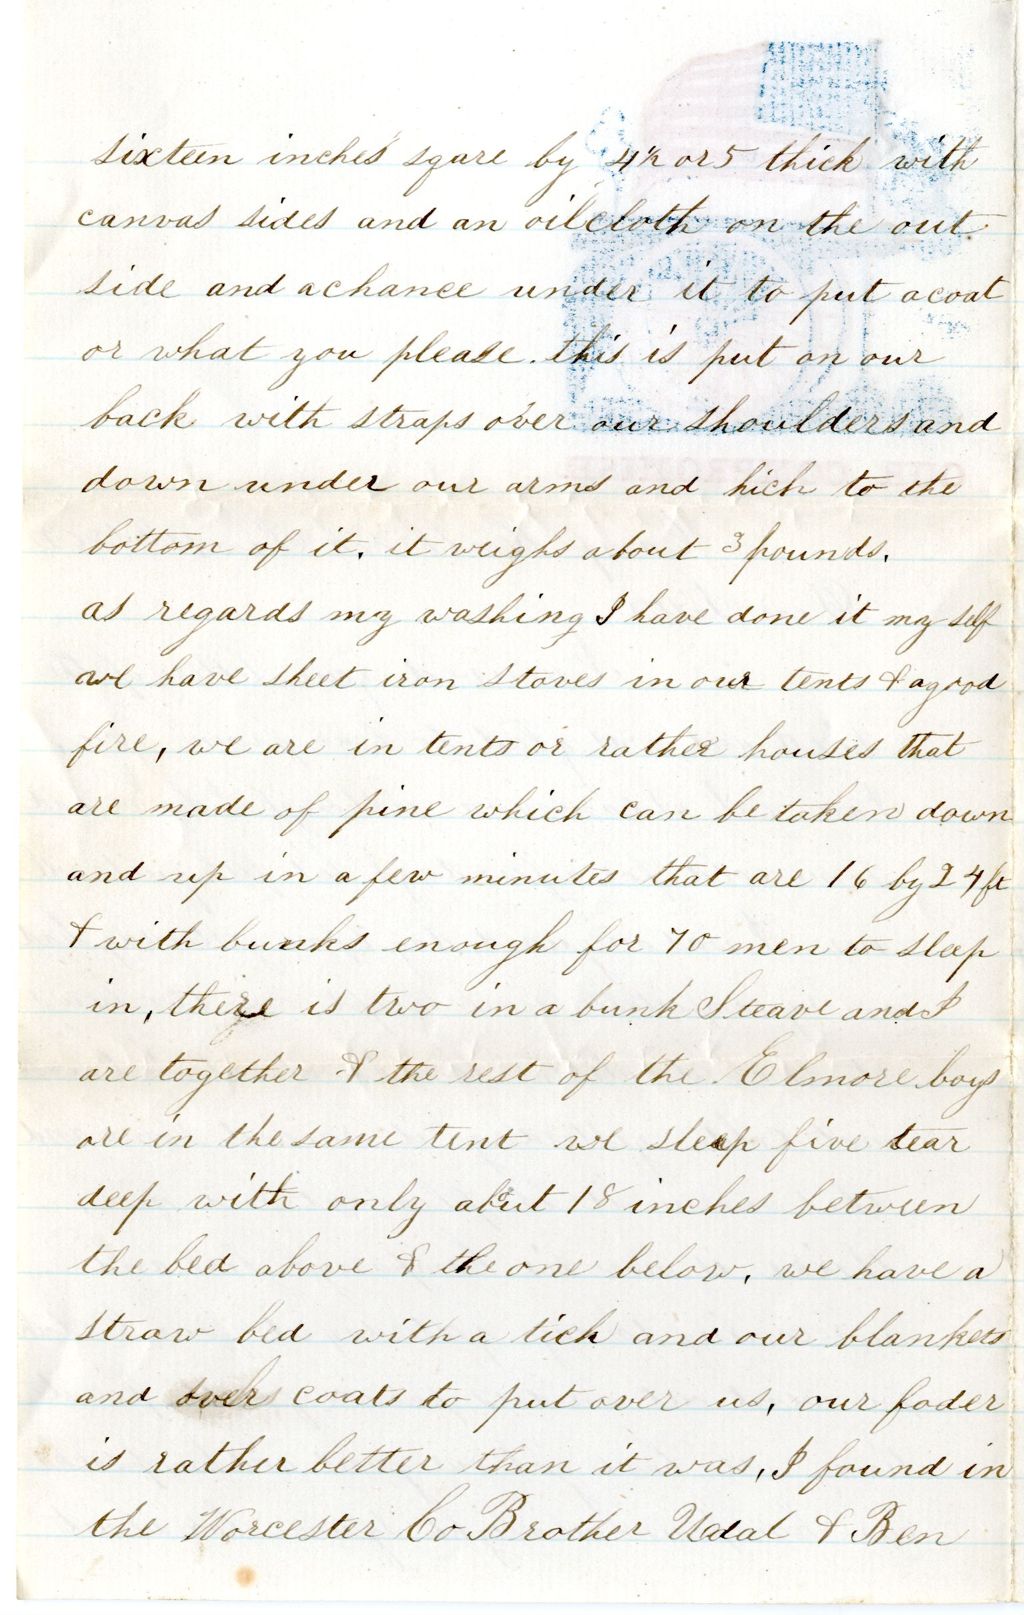 sixteen inches sqare by 4½ or 5 thick with
canvas sides and an oilcloth on the out
side and a chance under it to put a coat
or what you please. this is put on our
back with straps over our shoulders and
down under our arms and hich to the
bottom of it. it weighs about 3 pounds.
as regards my washing I have done it my self
we have sheet iron stoves in our tents & a good
fire, we are in tents or rather houses that
are made of pine which can be taken down
and up in a few minutes that are 16 by 24 ft
& with bunks enough for 70 men to sleep
in, there is two in a bunk Steave and I
are together & the rest of the Elmore boys
are in the same tent we sleep five tear
deep with only about 18 inches between
the bed above & the one below. we have a
straw bed with a tick and our blankets
and over coats to put over us, our foder
is rather better than it was, I found in
the Worcester Co Brother Udal & Ben